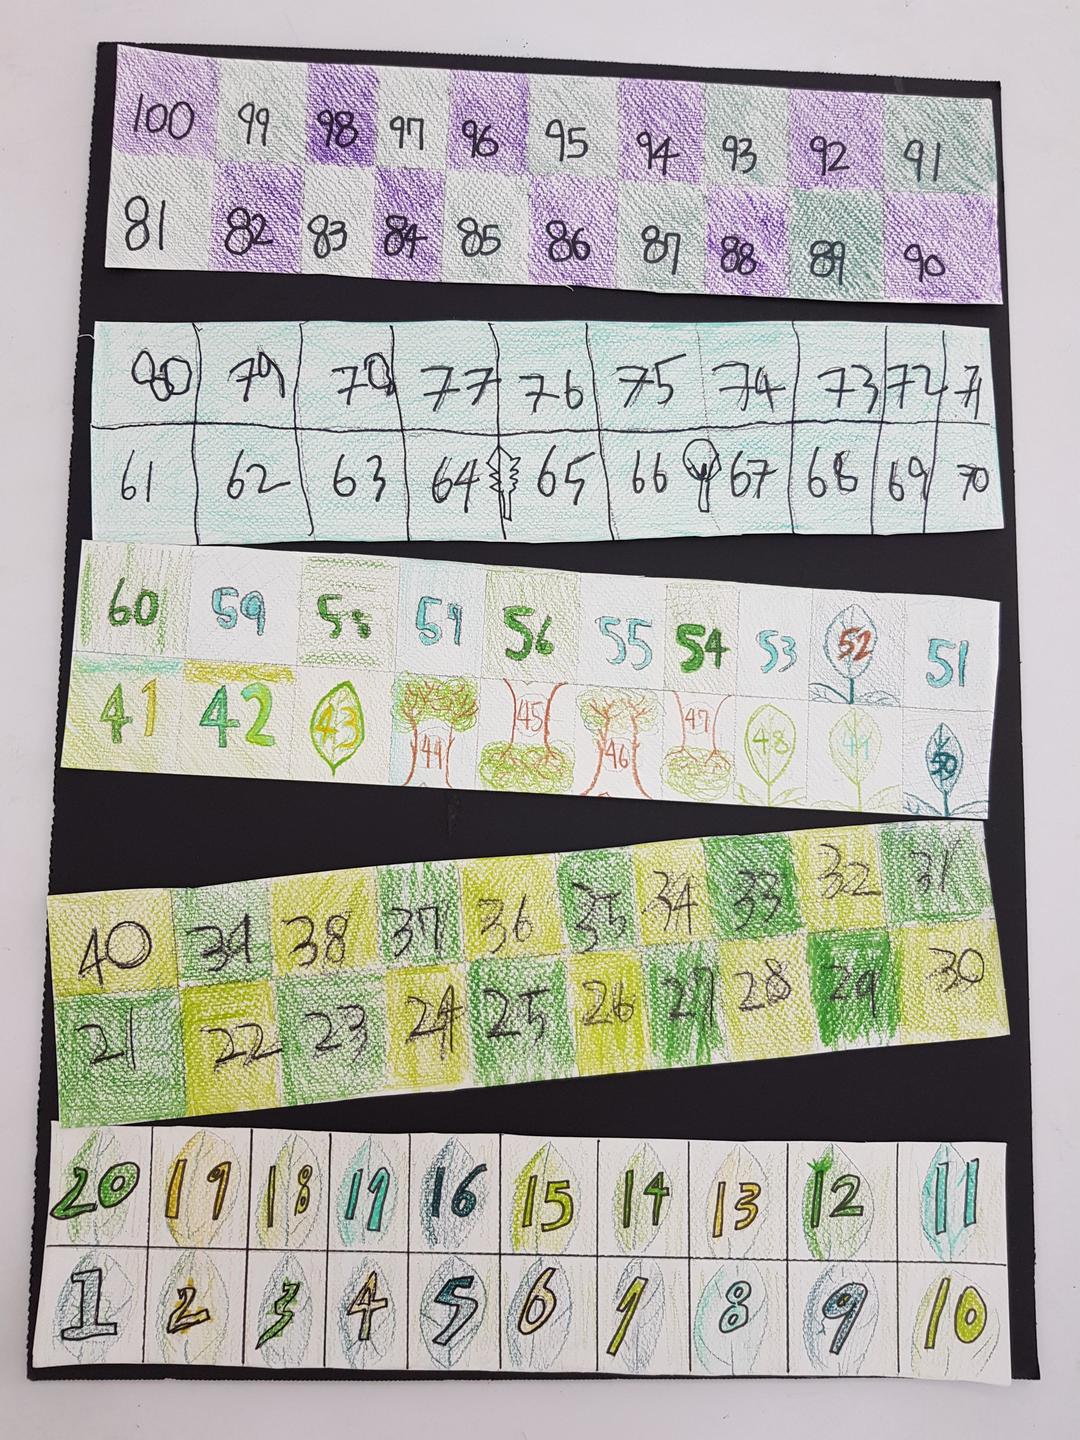 100 99 98 97 96 95 94 93 92 91
81 82 83 84 85 86 87 88 89 90
80 79 78 77 76 75 74 73 72 71
61 62 63 64 65 66 67 68 69 70
60 59 58 57 56 55 54 53 52 51
41 42 43 44 45 46 47 48 49 50
40 39 38 37 36 35 34 33 32 31
21 22 23 24 25 26 27 28 29 30
20 19 18 17 16 15 14 13 12 11
1 2 3 4 5 6 7 8 9 10